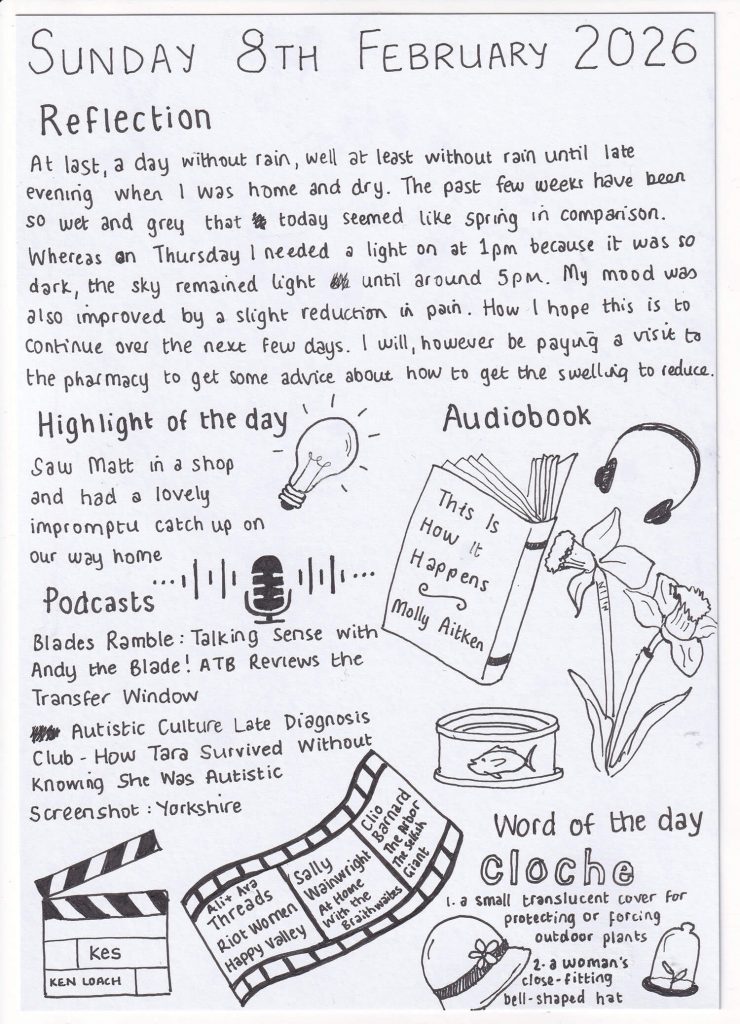 SUNDAY 8TH FEBRUARY 2026
Reflection
At last, a day without rain, well at least without rain until late
evening when I was home and dry. The past few weeks have been
so wet and grey that today seemed like spring in comparison.
Whereas on Thursday I needed a light on at 1pm because it was so
dark, the sky remained light until around 5pm. My mood was
also improved by a slight reduction in pain. How I hope this is to
continue over the next few days. I will, however be paying a visit to
the pharmacy to get some advice about how to get the swelling to reduce.
Highlight of the day
Saw Matt in a shop
and had a lovely
impromptu catch up on
our way home
Audiobook
This Is
How It
Happens
Molly Aitken
Podcasts
Blades Ramble: Talking Sense with
Andy the Blade! ATB Reviews the
Transfer Window
Autistic Culture Late Diagnosis
Club - How Tara Survived Without
Knowing She Was Autistic
Screenshot: Yorkshire
Kes
KEN LOACH
Ali + Ava
Threads
Riot Women
Happy Valley
Sally
Wainwright
At Home
With the
Braithwaites
Clio
Barnard
The Arbor
The Selfish
Giant
Word of the day
cloche
1. a small translucent cover for
protecting or forcing
outdoor plants
2. a woman's
close-fitting
bell-shaped hat